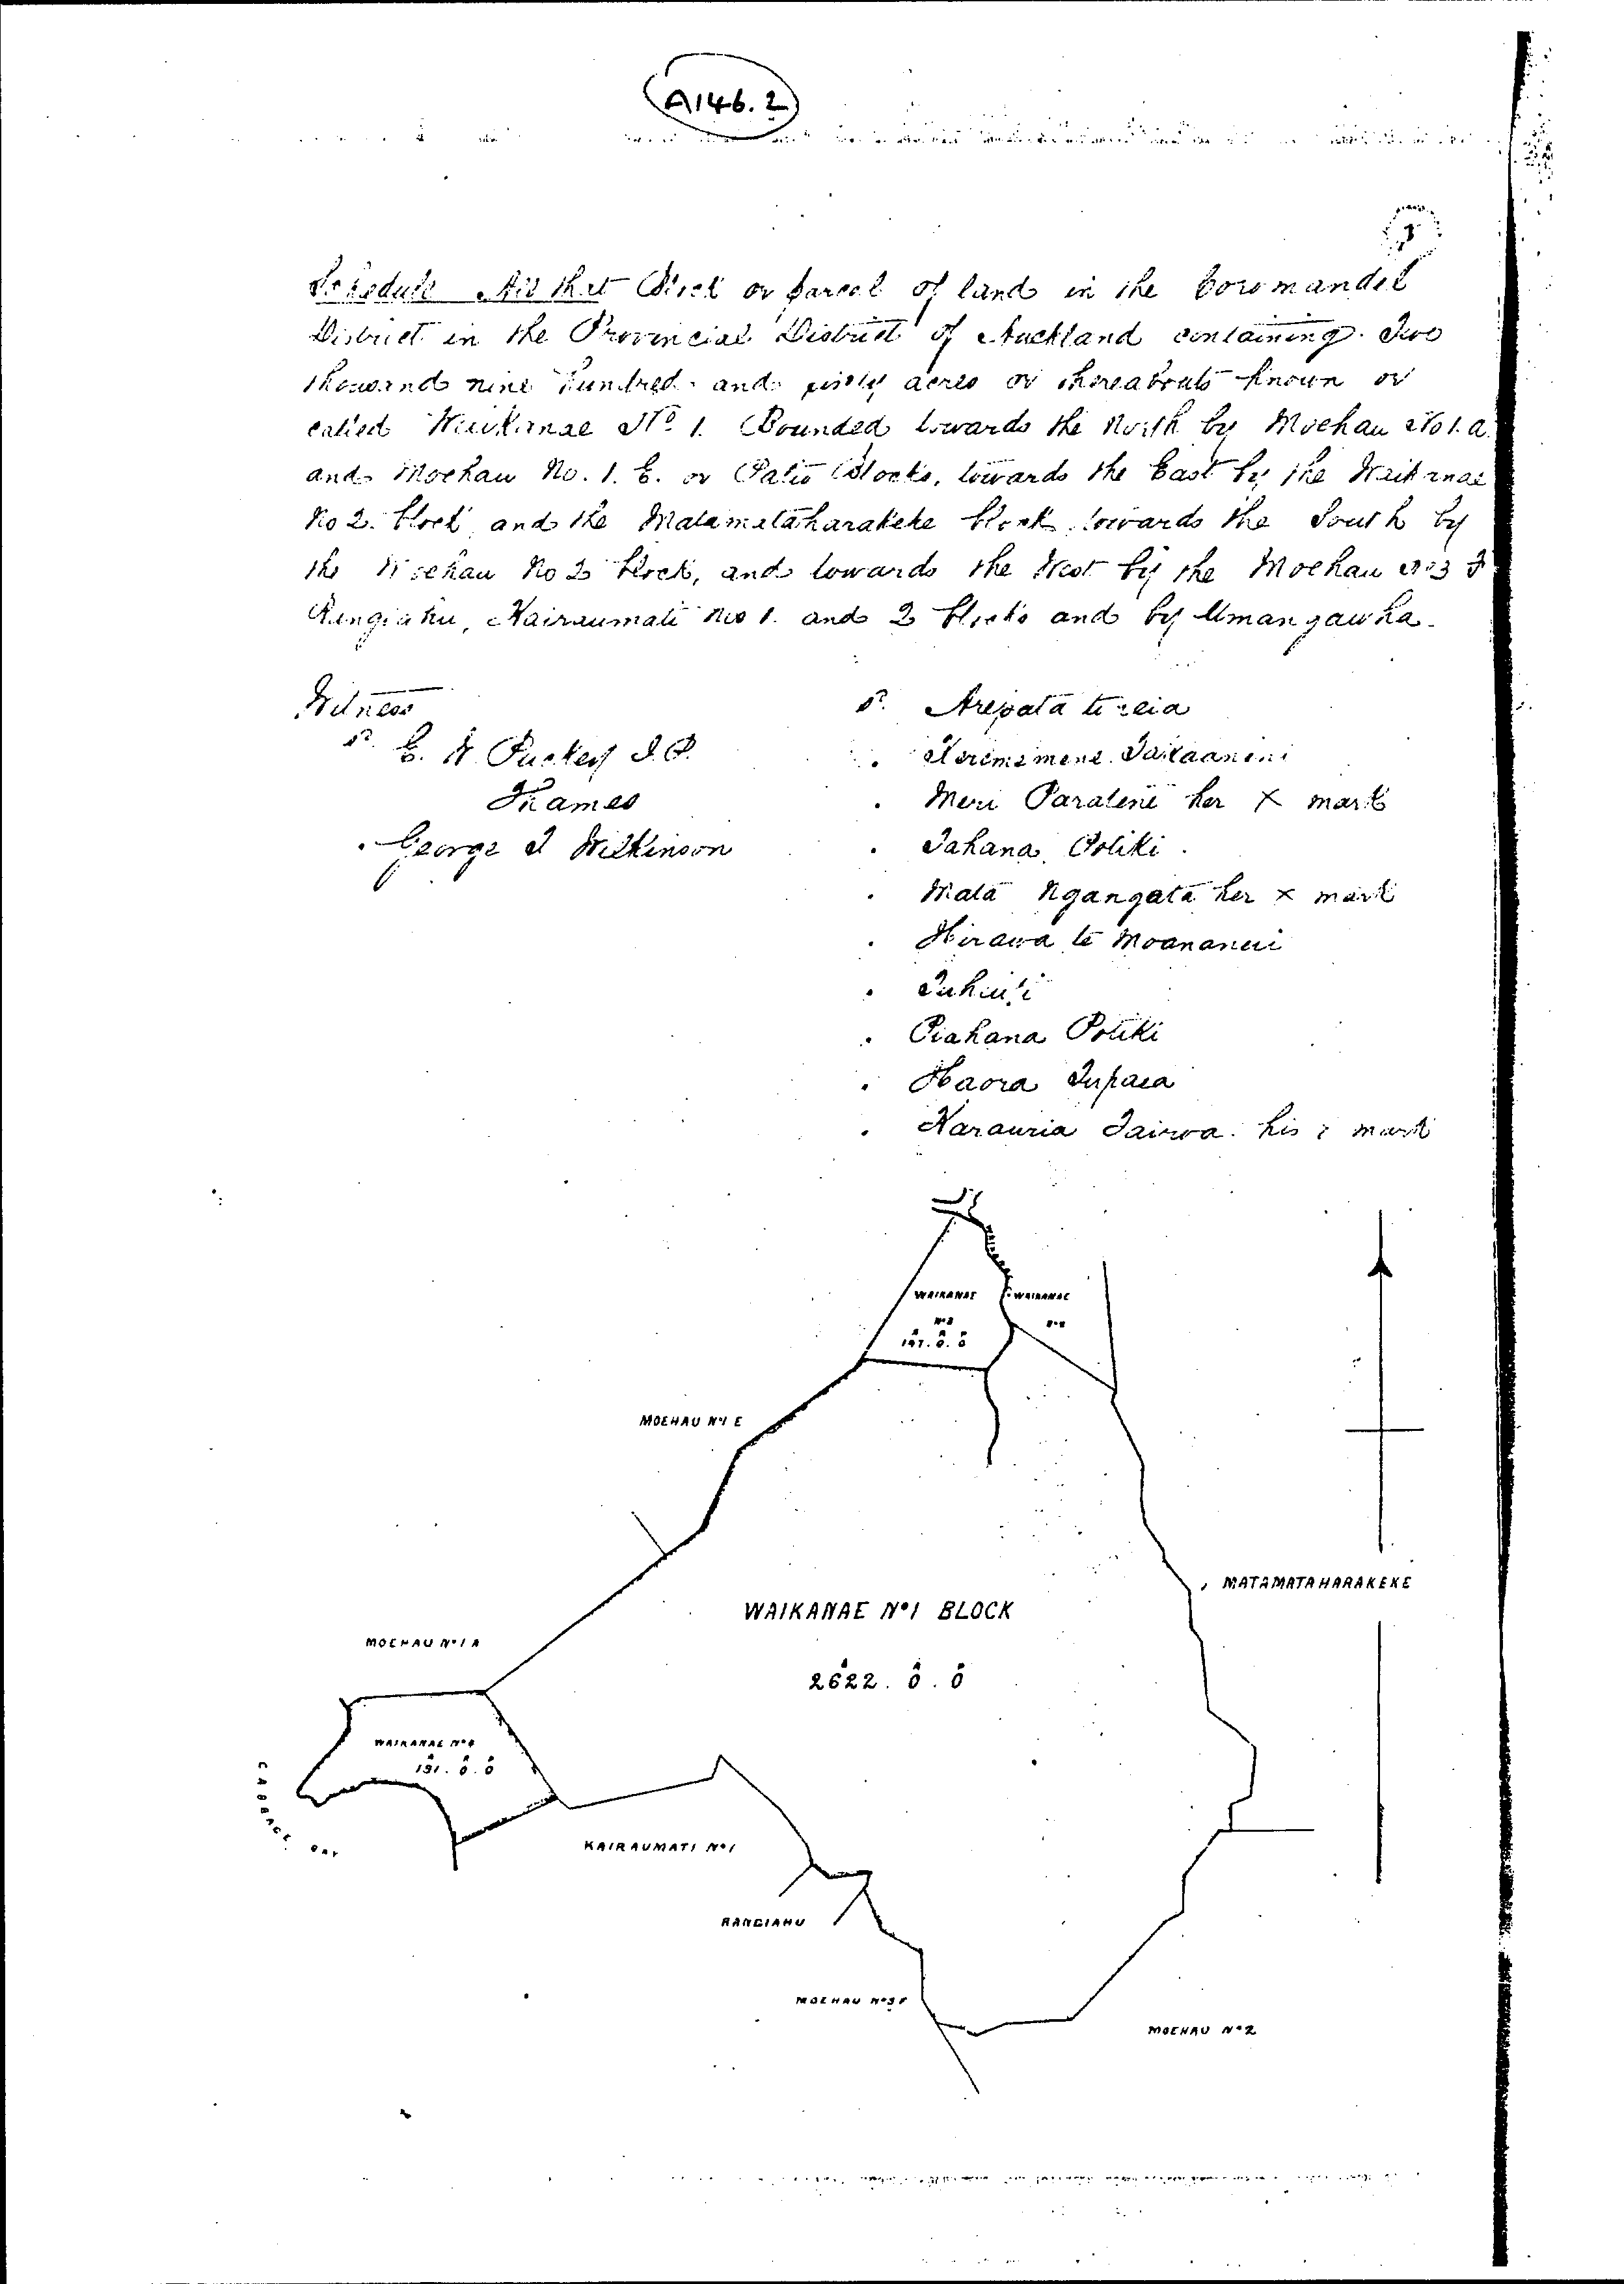 A146.2
Schedule All that Block or parcel of land in the Coromandel
District in the Provincial District of Auckland containing Two
thousand nine hundred and acres or thereabouts known or
called Waikanae No 1. Bounded towards the North by Moehau No 1. A
and Moehau No. 1. E. or Blocks, towards the East by the Waikanae
No 2. block and the Matamataharakeke block towards the South by
the Moehau No 2 block, and towards the West by the Moehau No 3 F
Rangiahu, Kairaumati No 1. and 2 blocks and by Umangawha.
Witness
E. W. Puckey J.P.
Thames
George T Wilkinson
Arepata te reia
Meri Paratene her X mark
Tahana Potiki
Mata Ngangata her x mark
Hirawa te Moananui
Piahana Potiki
Haora Tupaea
Karauria Tairua his mark
WAIKANAE WAIKANAE
No 3
197. 0. 0
MOEHAU No 1 E
MATAMATAHARAKEKE
WAIKANAE No 1 BLOCK
MOEHAU No 1 A
A R P
2622. 0. 0
WAIKANAE No 4
191. 0. 0
CABBAGE BAY
KAIRAUMATI No 1
RANGIAHU
MOEHAU No 3F
MOEHAU No 2